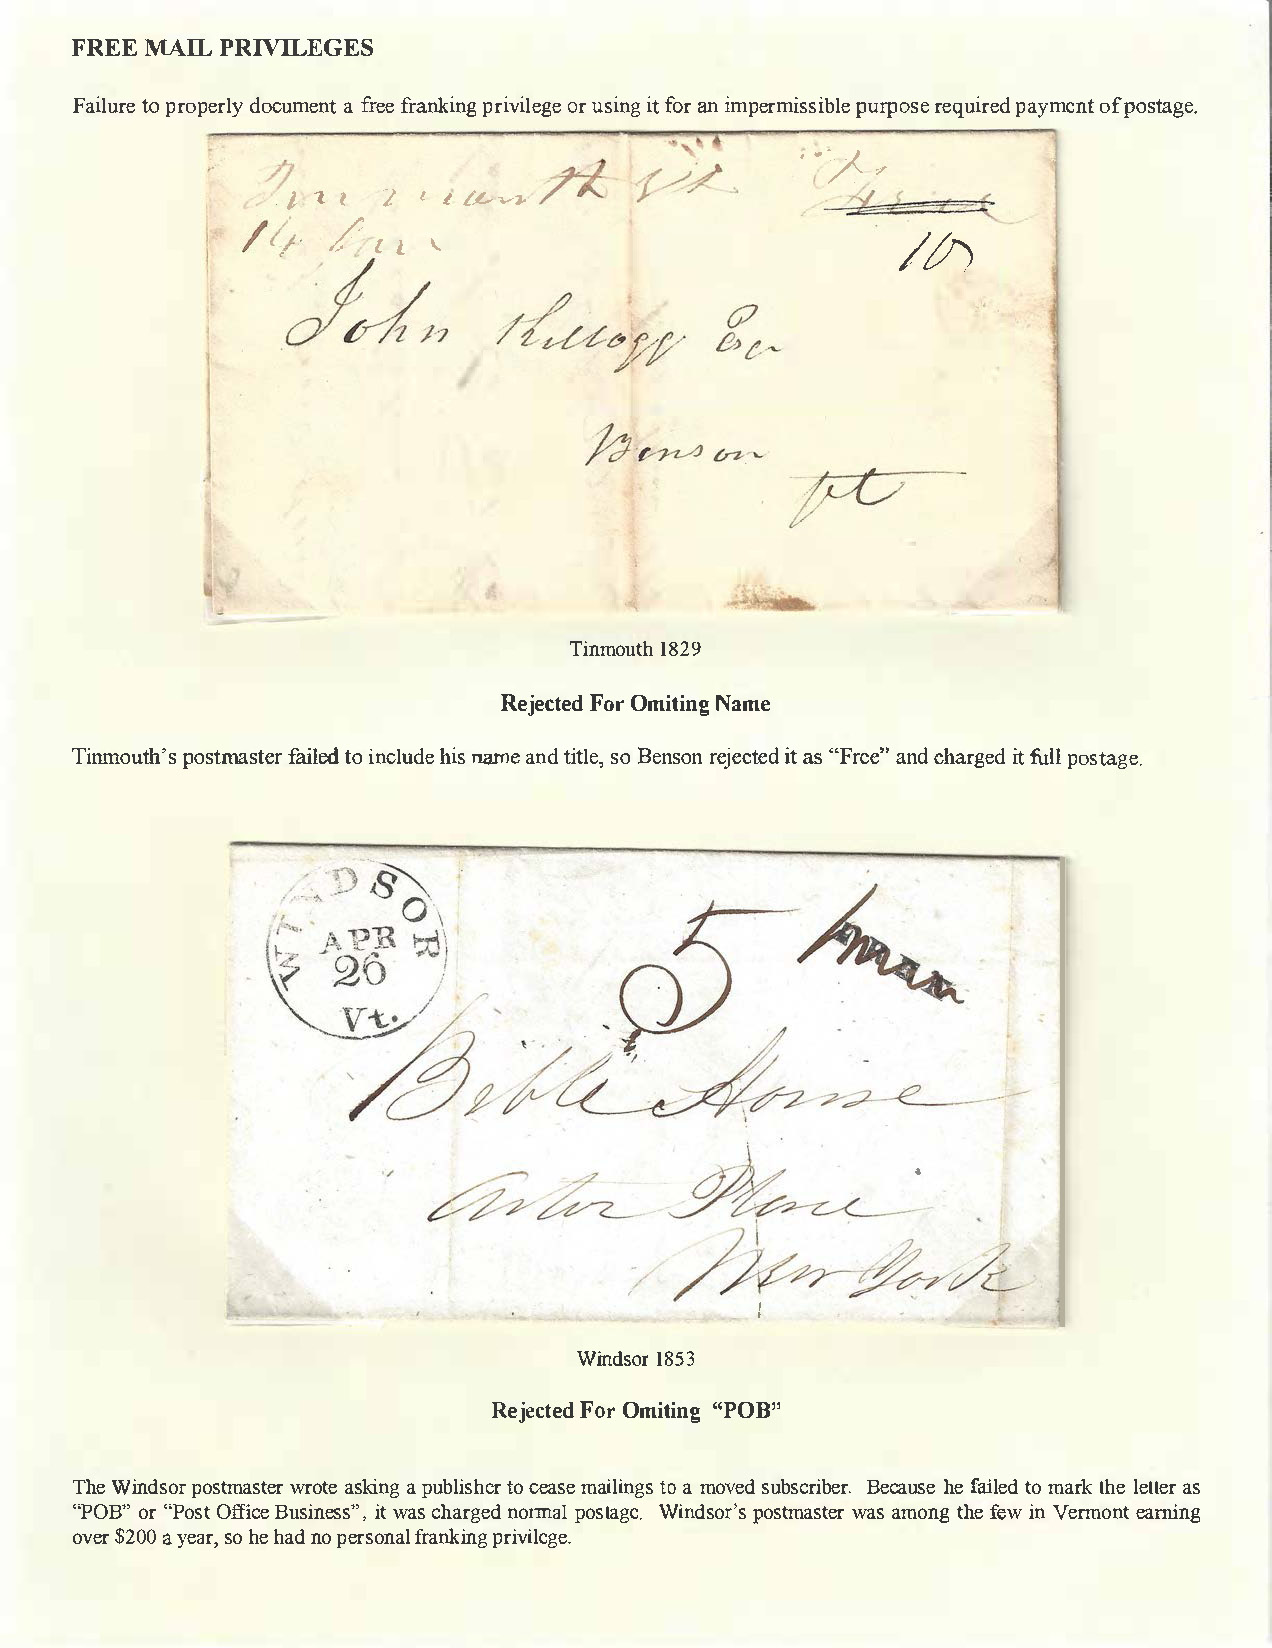 FREE MAIL PRIVILEGES
Failure to properly document a free franking privilege or using it for an impermissible purpose required payment of postage.
Tinmouth Vt Free
14 Jan 10
John Kellogg Esq
Benson
Vt
Tinmouth 1829
Rejected For Omiting Name
Tinmouth's postmaster failed to include his name and title, so Benson rejected it as “Free” and charged it full postage.
WINDSOR
APR
26
Vt.
5
Bible House
Astor Place
New York
Windsor 1853
Rejected For Omiting “POB”
The Windsor postmaster wrote asking a publisher to cease mailings to a moved subscriber. Because he failed to mark the letter as
“POB” or “Post Office Business”, it was charged normal postage. Windsor's postmaster was among the few in Vermont earning
over $200 a year, so he had no personal franking privilege.